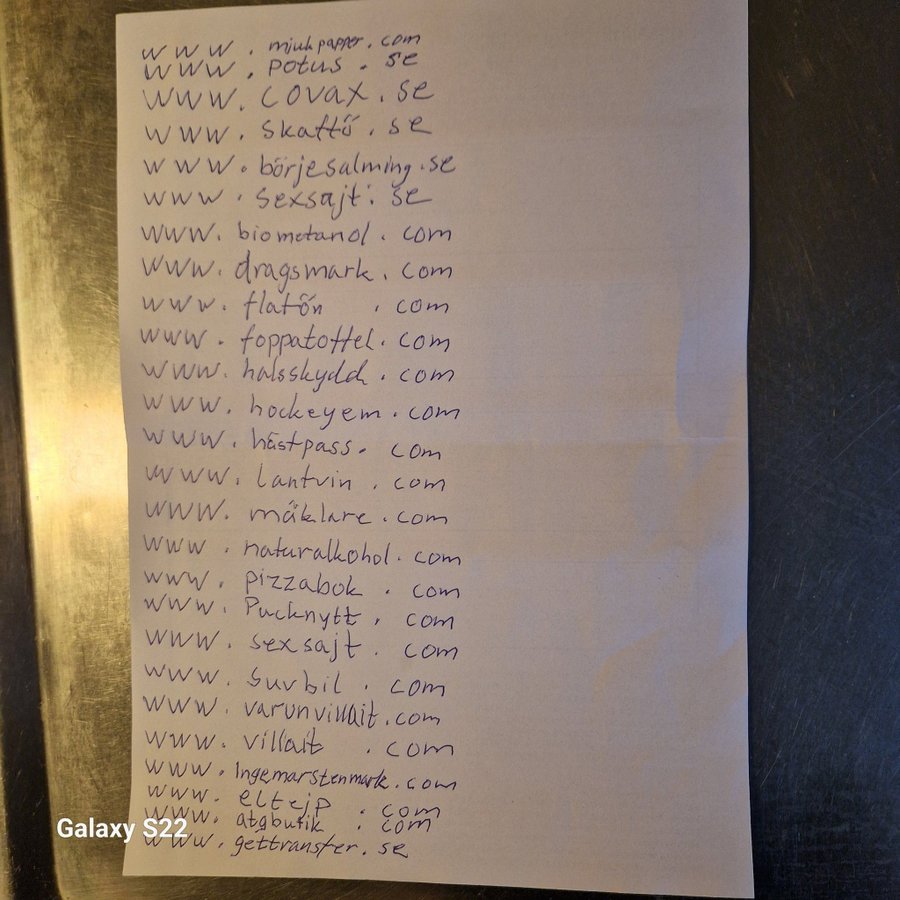 www. mjukpapper.com
www. potus. se
www. covax. se
www. skattö. se
www. börjesalming.se
www. sexsajt. se
www. biometanol. com
www. dragsmark. com
www. flatön . com
www. foppatoffel. com
www. halsskydd. com
www. hockeyem. com
www. hästpass. com
www. lantvin . com
www. mäklare. com
www. naturalkohol. com
www. pizzabok . com
www. Pucknytt . com
www. sexsajt . com
www. suvbil . com
www. varunvillait. com
www. villait . com
www. Ingemarstenmark. com
www. eltejp . com
www. atgbutik . com
www. gettransfer. se
Galaxy S22